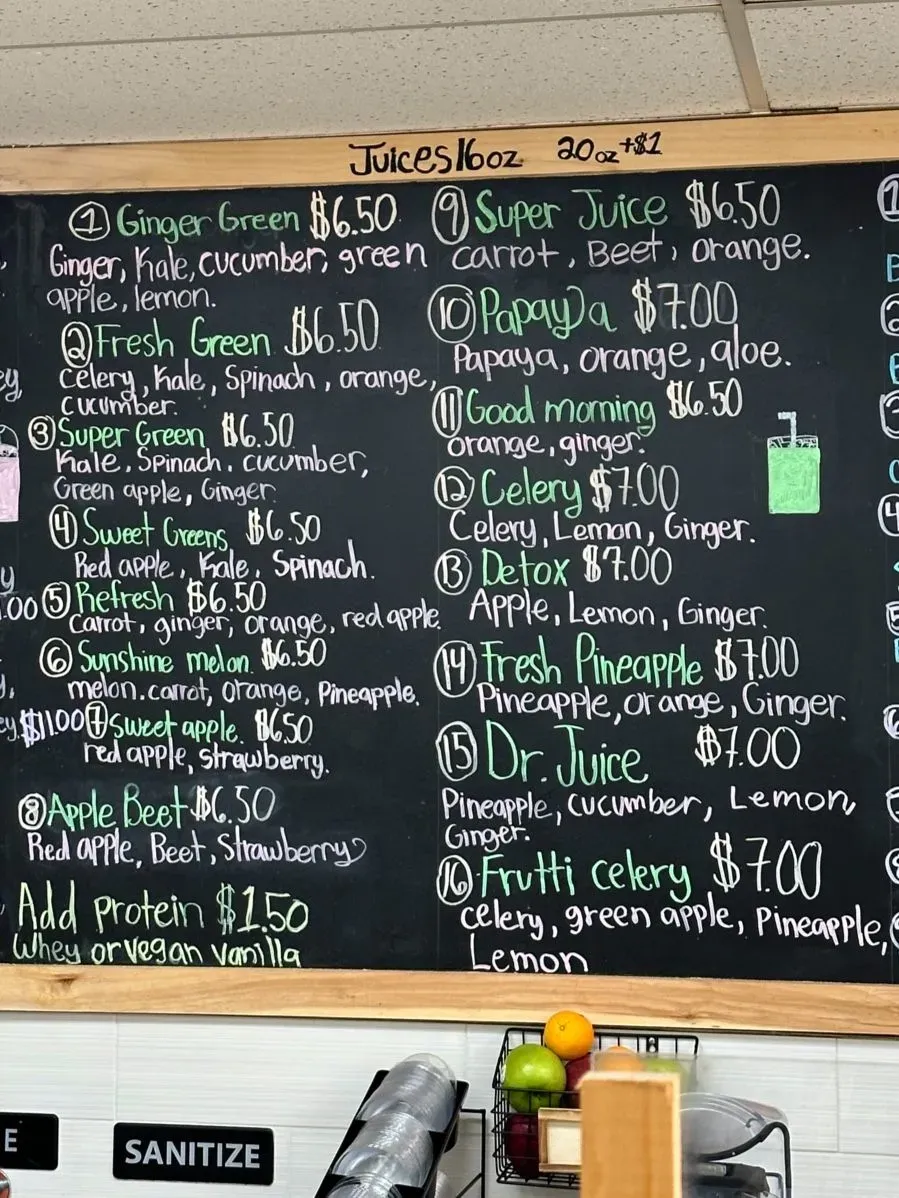 Juices 16oz 20oz +$1
① Ginger Green $6.50
Ginger, Kale, cucumber, green
apple, lemon.
② Fresh Green $6.50
celery, Kale, Spinach, orange,
cucumber.
③ Super Green $6.50
Kale, Spinach, cucumber,
Green apple, Ginger.
④ Sweet Greens $6.50
Red apple, Kale, Spinach.
⑤ Refresh $6.50
Carrot, ginger, orange, red apple.
⑥ Sunshine melon $6.50
melon, carrot, orange, Pineapple.
$11.00
⑦ Sweet apple. $6.50
red apple, Strawberry.
⑧ Apple Beet $6.50
Red apple, Beet, Strawberry
Add protein $1.50
Whey or vegan vanilla
⑨ Super Juice $6.50
carrot, Beet, orange.
⑩ Papaya $7.00
Papaya, orange, aloe.
⑪ Good morning $6.50
orange, ginger.
⑫ Celery $7.00
Celery, Lemon, Ginger.
⑬ Detox $7.00
Apple, Lemon, Ginger.
⑭ Fresh Pineapple $7.00
Pineapple, orange, Ginger.
⑮ Dr. Juice $7.00
Pineapple, cucumber, Lemon,
Ginger.
⑯ Frutti celery $7.00
celery, green apple, Pineapple,
Lemon
SANITIZE